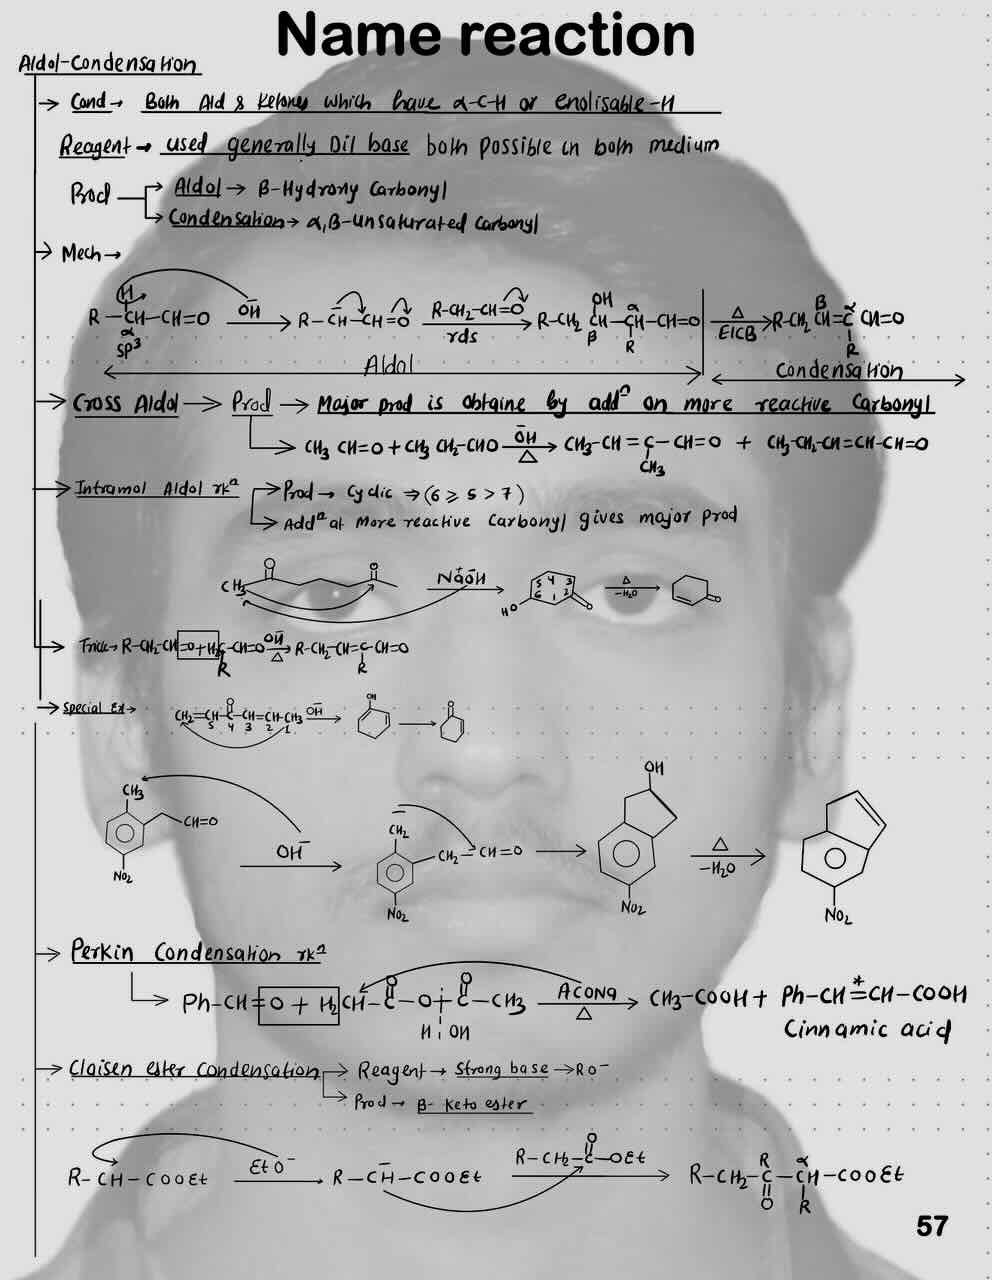 Name reaction
Aldol-Condensation
→ Cond → Both Ald & Ketones which have α-C-H or enolisable-H
Reagent → used generally Dil base both possible in both medium
Prod → Aldol → β-Hydroxy Carbonyl
→ Condensation → α,β-unsaturated Carbonyl
→ Mech →
H OH α β α
R-CH-CH=O ŌH → R-C̄H-CH=O R-CH₂-CH=O → rds R-CH₂ CH-CH-CH=O Δ → EICB R-CH₂ CH=C CH=O
α sp³ β R R
Aldol Condensation
→ Cross Aldol → Prod → Major prod is obtaine by addⁿ on more reactive Carbonyl
→ CH₃ CH=O + CH₃ CH₂-CHO ŌH → Δ CH₃-CH=C-CH=O + CH₃-CH₂-CH=CH-CH=O
CH₃
→ Intramol Aldol rxⁿ → Prod → Cyclic ⇒ (6 ⩾ 5 > 7)
→ Addⁿ at More reactive Carbonyl gives major prod
O O
CH₃ NaŌH⁺ → HO 5 4 3 6 1 2 O Δ → -H₂O O
→ Trick → R-CH₂-CH=O+H₂C-CH=O ŌH → Δ R-CH₂-CH=C-CH=O
R R
→ Special Ex →
O OH O
CH₂=CH-C-CH=CH-CH₃ ŌH → →
5 4 3 2 1
CH₃ CH=O NO₂ OH⁻ → CH₂ CH₂-CH=O NO₂ → OH NO₂ Δ → -H₂O NO₂
→ Perkin Condensation rxⁿ
→ Ph-CH=O + H₂CH-C-O-C-CH₃ ACONa → Δ CH₃-COOH + Ph-CH=*CH-COOH
O O
H OH
Cinnamic acid
→ Claisen ester condensation → Reagent → Strong base → RO⁻
→ Prod → β-Keto ester
R-CH-COOEt EtO⁻ → R-C̄H-COOEt R-CH₂-C-OEt → R-CH₂-C-CH-COOEt
O R α
O R
57